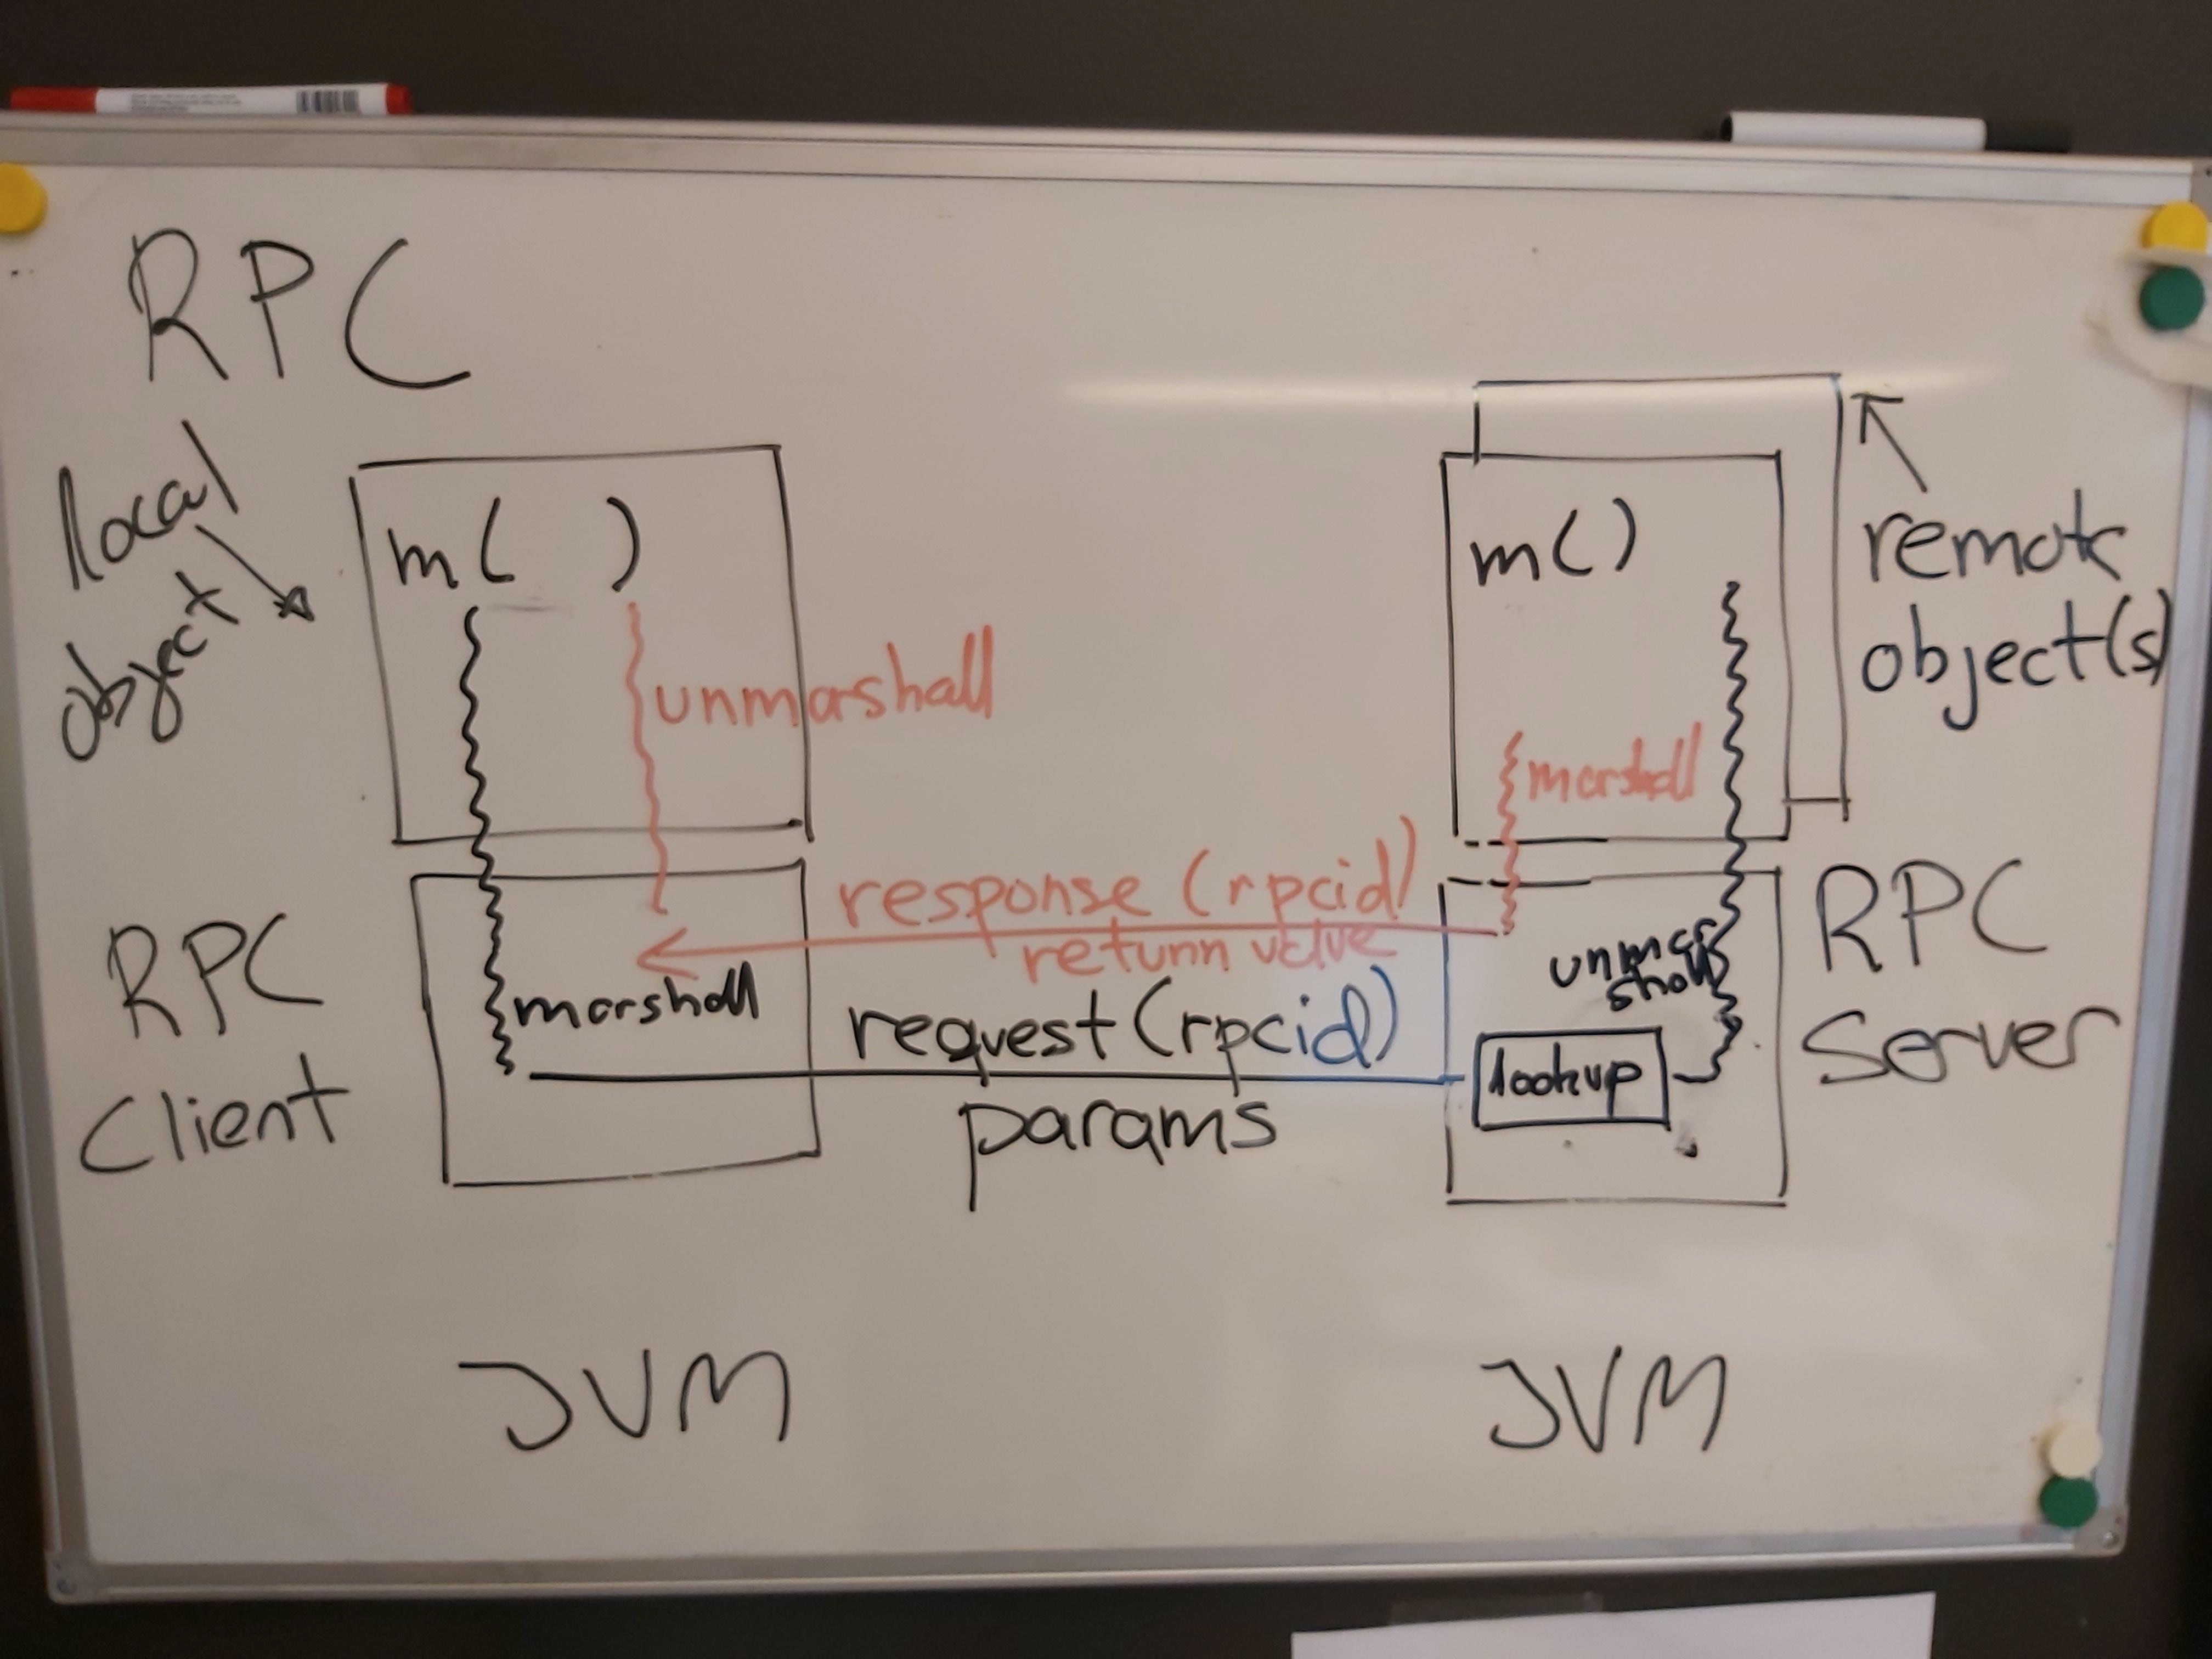 RPC
local
object
m( )
unmarshall
m()
marshall
remote
object(s)
response (rpcid)
return value
RPC
Client
marshall
request (rpcid)
params
unmar
shall
lookup
RPC
Server
JVM
JVM